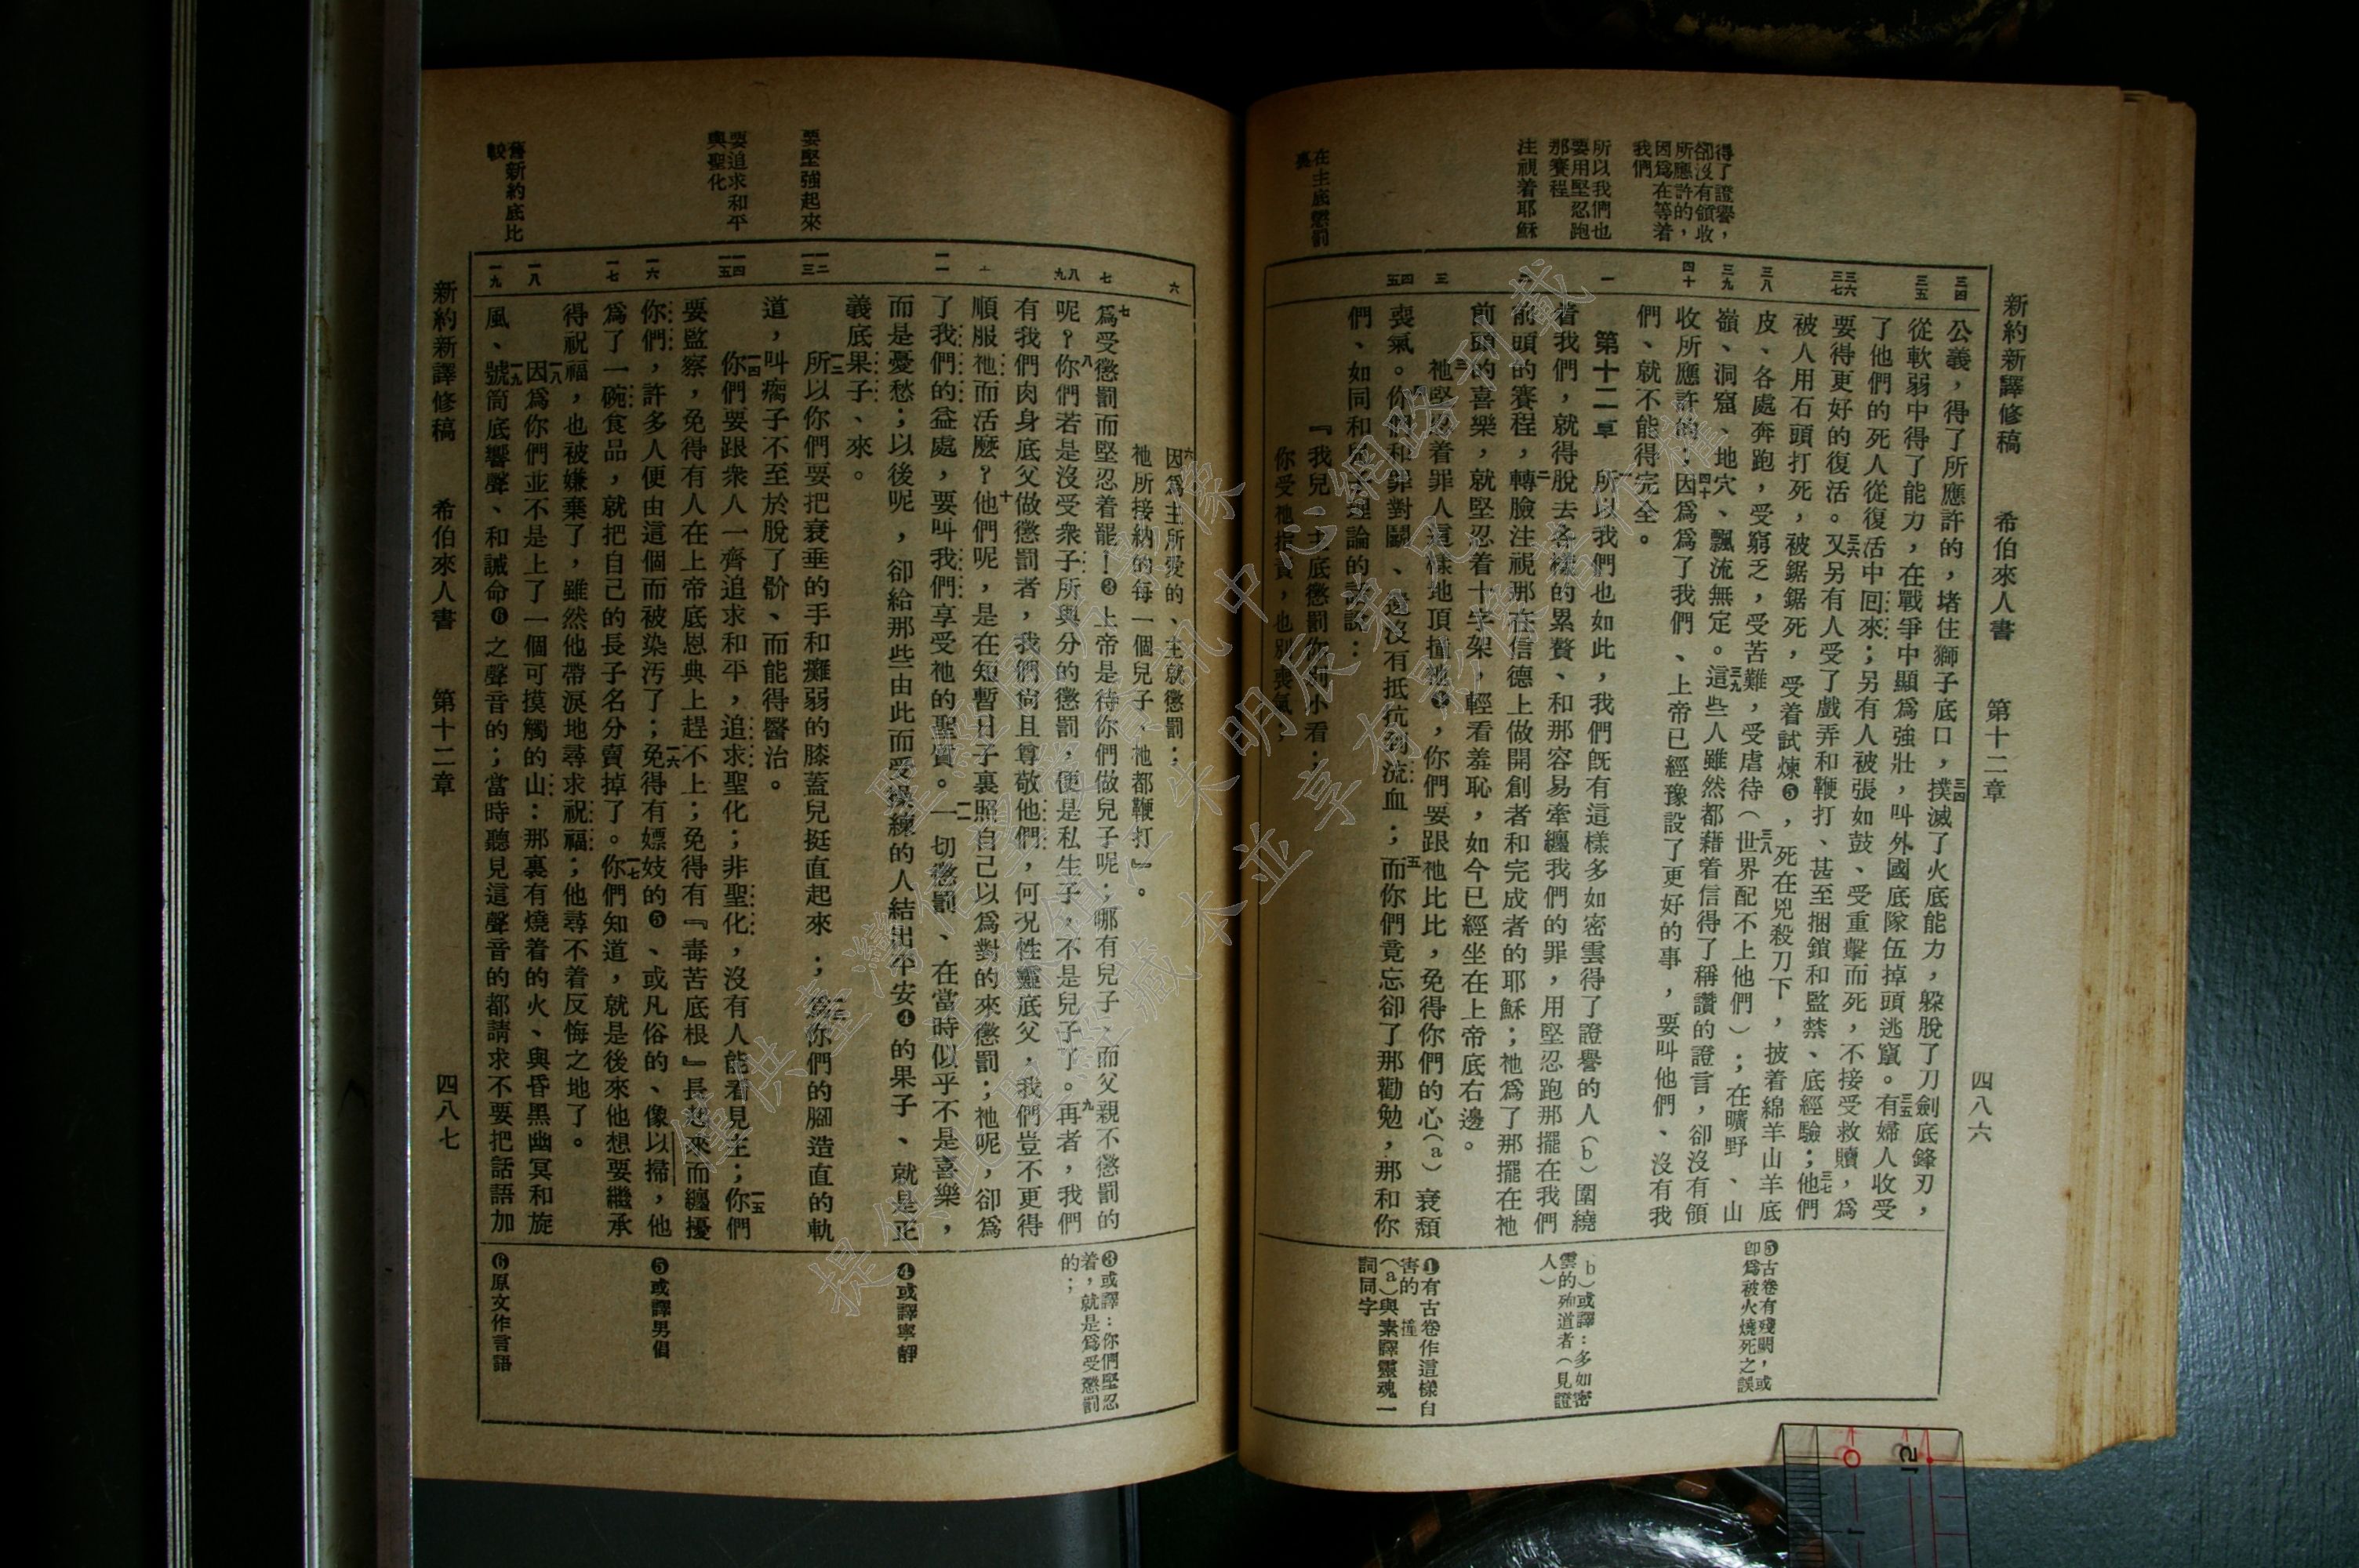 新約新譯修稿　希伯來人書　第十二章　四八六
得了證譽，
卻沒有領收
所應許的，
因爲在等着
我們
所以我們也
要用堅忍跑
那賽程
注視着耶穌
在主底懲罰
裏
三四
三五
三六
三七
三八
三九
四十
一
二
三
四
五
公義，得了所應許的，堵住獅子底口，三四撲滅了火底能力，躲脫了刀劍底鋒刃，
從軟弱中得了能力，在戰爭中顯爲強壯，叫外國底隊伍掉頭逃竄。三五有婦人收受
了他們的死人從復活中回來；另有人被張如鼓、受重擊而死，不接受救贖，爲
要得更好的復活。三六又另有人受了戲弄和鞭打、甚至捆鎖和監禁、底經驗；三七他們
被人用石頭打死，被鋸鋸死，受着試煉❺，死在兇殺刀下，披着綿羊山羊底
皮、各處奔跑，受窮乏，受苦難，受虐待（三八世界配不上他們）；在曠野、山
嶺、洞窟、地穴、飄流無定。三九這些人雖然都藉着信得了稱讚的證言，卻沒有領
收所應許的；四十因爲爲了我們、上帝已經豫設了更好的事，要叫他們、沒有我
們、就不能得完全。
第十二章　一所以我們也如此，我們旣有這樣多如密雲得了證譽的人（b）圍繞
着我們，就得脫去各樣的累贅、和那容易牽纏我們的罪，用堅忍跑那擺在我們
前頭的賽程，二轉臉注視那在信德上做開創者和完成者的耶穌；祂爲了那擺在祂
前頭的喜樂，就堅忍着十字架，輕看羞恥，如今已經坐在上帝底右邊。
三祂堅忍着罪人這樣地頂撞祂❶，你們要跟祂比比，免得你們的心（a）衰頹
喪氣。四你們和罪對鬬、還沒有抵抗到流血；五而你們竟忘卻了那勸勉，那和你
們、如同和兒子理論的話說：
『我兒，主底懲罰你別小看；
你受祂指責，也別喪氣，
❺古卷有殘闕，或
卽爲被火燒死之誤
b）或譯：多如密
雲的殉道者（見證
人）
❶有古卷作這樣自
害的　撞
（a）與素譯靈魂一
詞同字
要堅強起來
要追求和平
與聖化
舊新約底比
較
六
七
八
九
十
一一
一二
一三
一四
一五
一六
一七
一八
一九
六因爲主所愛的、主就懲罰；
祂所接納的每一個兒子、祂都鞭打』。
七爲受懲罰而堅忍着罷！❸上帝是待你們做兒子呢；哪有兒子、而父親不懲罰的
呢？八你們若是沒受衆子所與分的懲罰，便是私生子，不是兒子了。九再者，我們
有我們肉身底父做懲罰者，我們尙且尊敬他們，何況性靈底父，我們豈不更得
順服祂而活麼？十他們呢，是在短暫日子裏照自己以爲對的來懲罰；祂呢，卻爲
了我們的益處，要叫我們享受祂的聖質。一一一切懲罰、在當時似乎不是喜樂，
而是憂愁；以後呢，卻給那些由此而受操練的人結出平安❹的果子、就是正
義底果子、來。
一二所以你們要把衰垂的手和癱弱的膝蓋兒挺直起來；一三爲你們的腳造直的軌
道，叫瘸子不至於脫了骱、而能得醫治。
一四你們要跟衆人一齊追求和平，追求聖化；非聖化，沒有人能看見主；一五你們
要監察，免得有人在上帝底恩典上趕不上；免得有『毒苦底根』長起來而纏擾
你們，許多人便由這個而被染汚了；一六免得有嫖妓的❺、或凡俗的、像以掃，他
爲了一碗食品，就把自己的長子名分賣掉了。一七你們知道，就是後來他想要繼承
得祝福，也被嫌棄了，雖然他帶淚地尋求祝福；他尋不着反悔之地了。
一八因爲你們並不是上了一個可摸觸的山：那裏有燒着的火、與昏黑幽冥和旋
風、一九號筒底響聲、和誡命❻之聲音的；當時聽見這聲音的都請求不要把話語加
❸或譯：你們堅忍
着，就是爲受懲罰
的；
❹或譯寧靜
❺或譯男倡
❻原文作言語
新約新譯修稿　希伯來人書　第十二章　四八七